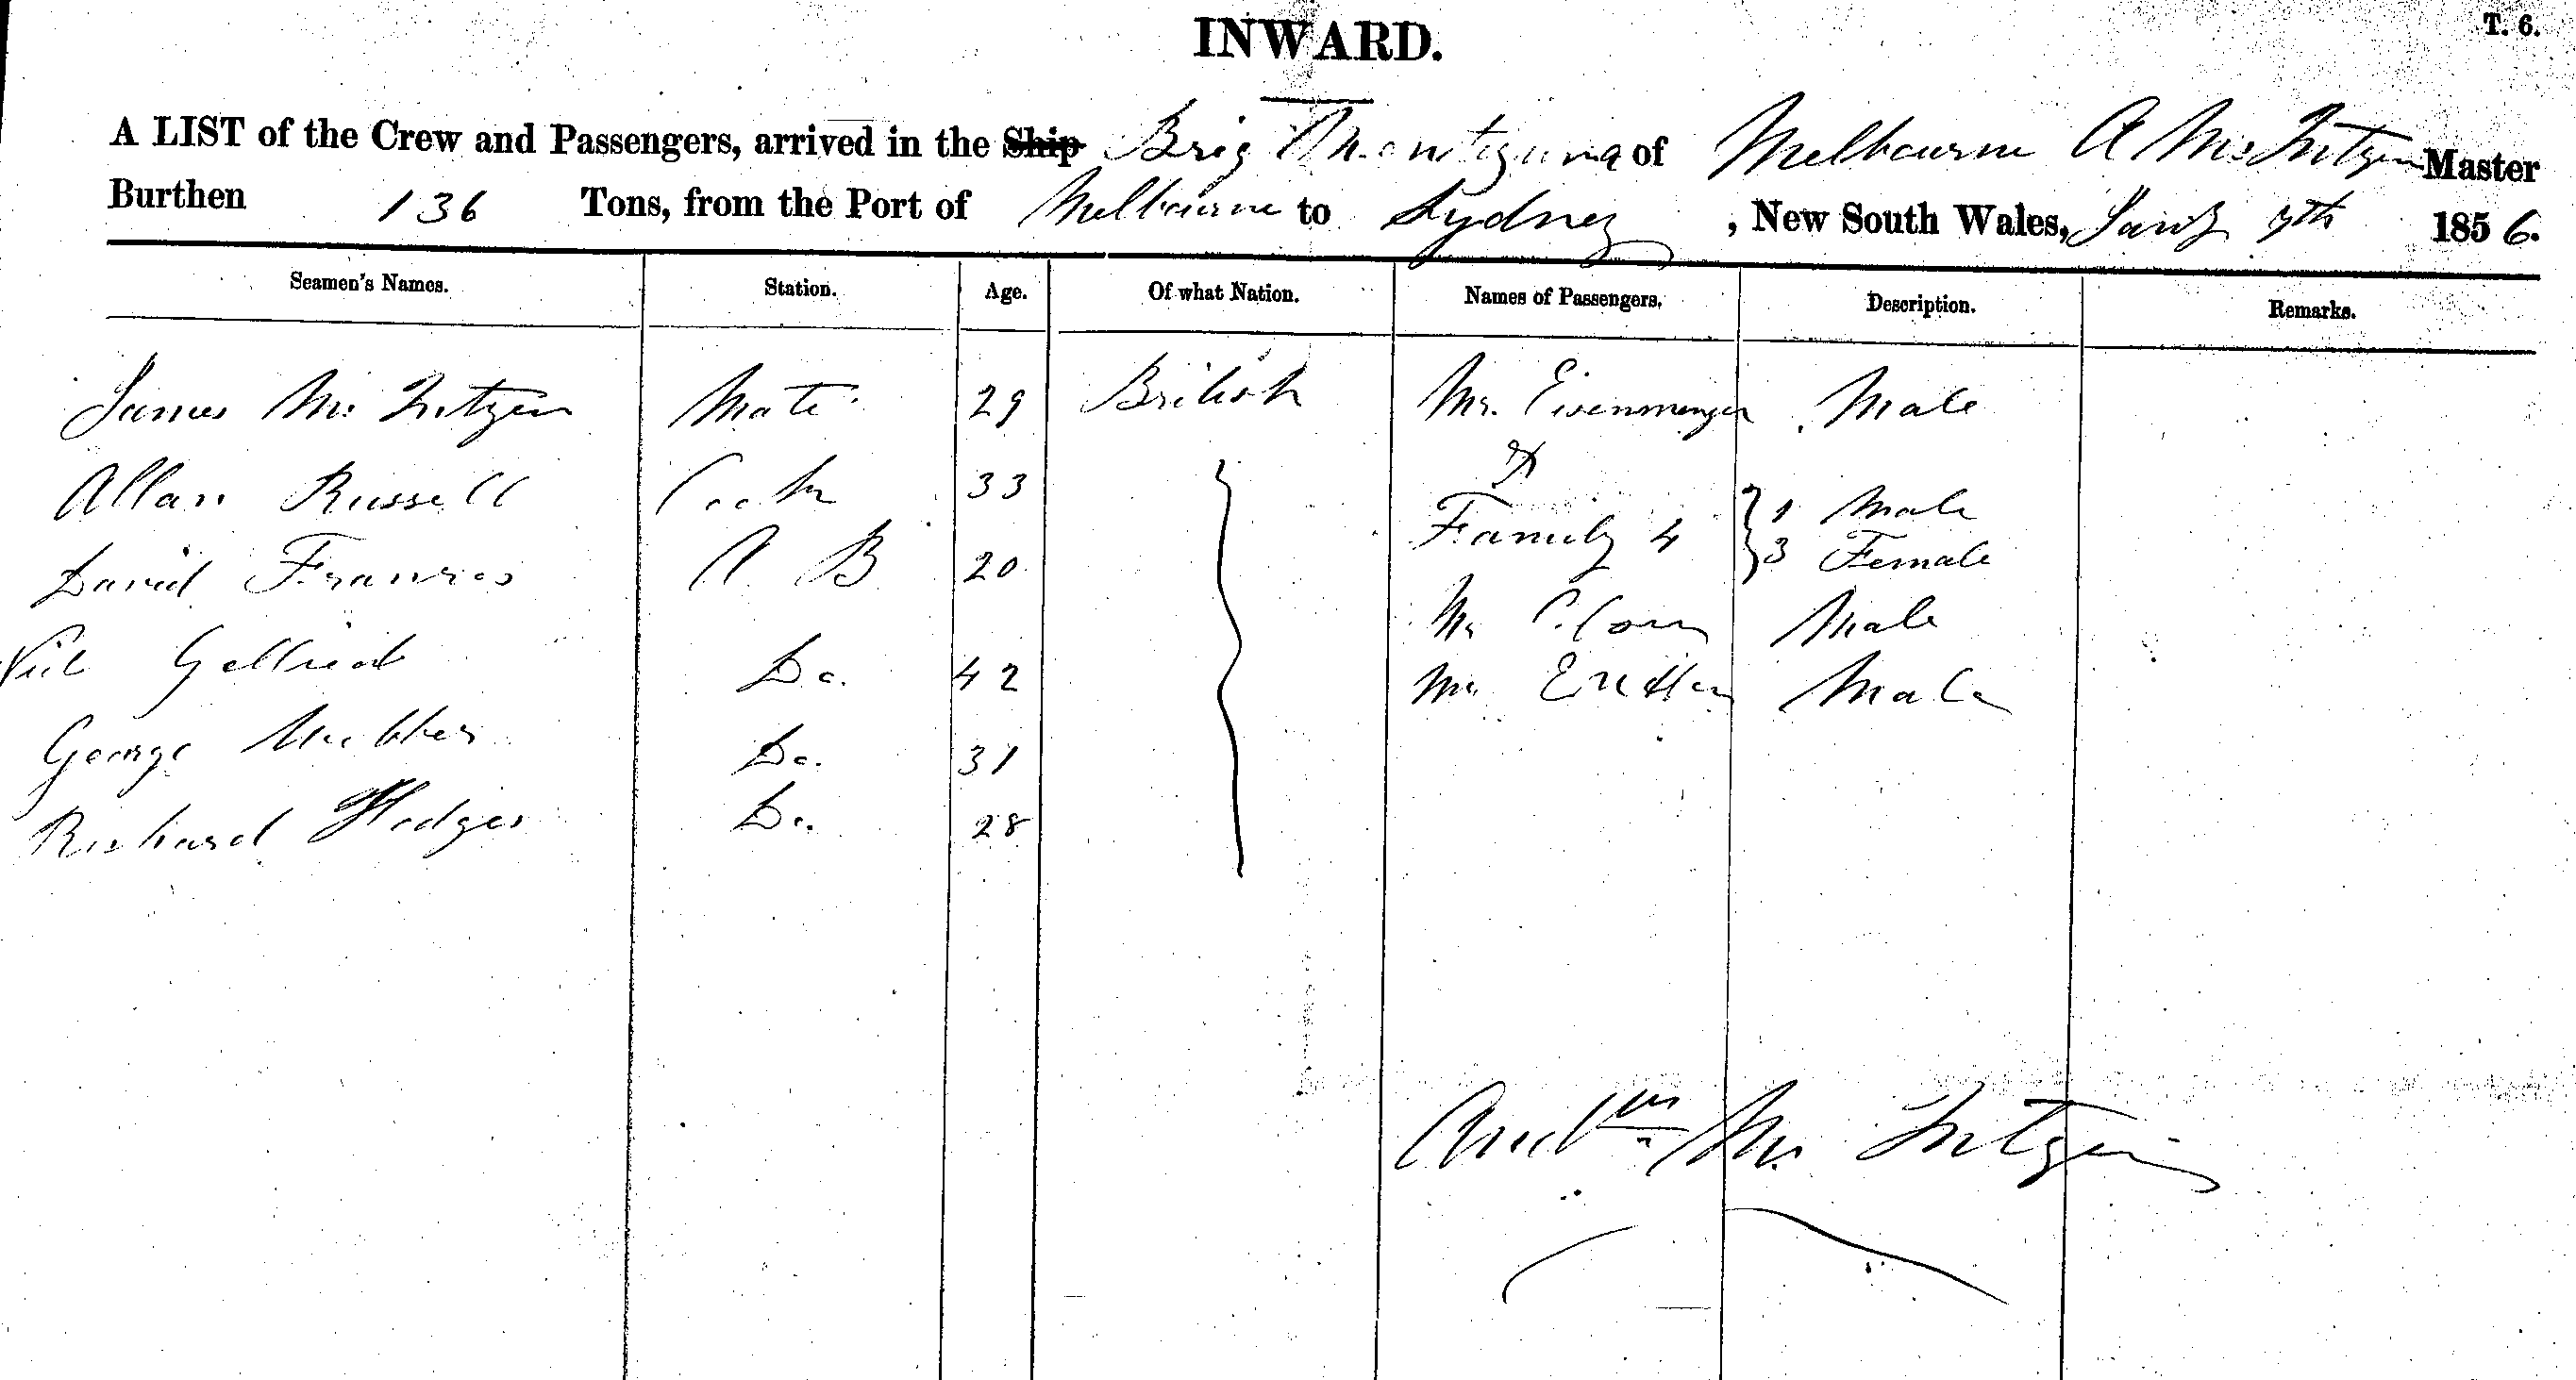 INWARD.
T. 6.
A LIST of the Crew and Passengers, arrived in the Ship Brig Montezuma of Melbourne A Mc Intzen Master
Burthen 136 Tons, from the Port of Melbourne to Sydney, New South Wales, Jany 7th 1856.
Seamen's Names. Station. Age. Of what Nation. Names of Passengers. Description. Remarks.
James Mc Intzen Mate 29 British Mr. Eisenmenger Male
Allan Russell Cook 33 &
Family 4 1 Male
David Francis A B 20 3 Female
Mr Male
Do. 42 Mr Male
George Do. 31
Richard Hodges Do. 28
Mc Intzen